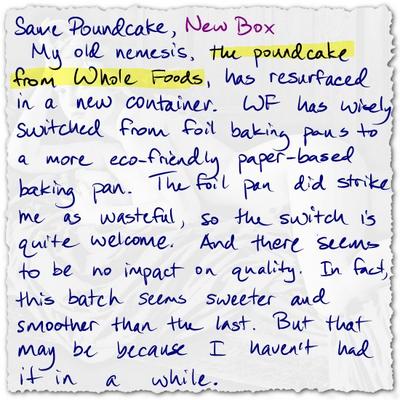 Same Poundcake, New Box
My old nemesis, the poundcake
from Whole Foods, has resurfaced
in a new container. WF has wisely
switched from foil baking pans to
a more eco-friendly paper-based
baking pan. The foil pan did strike
me as wasteful, so the switch is
quite welcome. And there seems
to be no impact on quality. In fact,
this batch seems sweeter and
smoother than the last. But that
may be because I haven't had
it in a while.